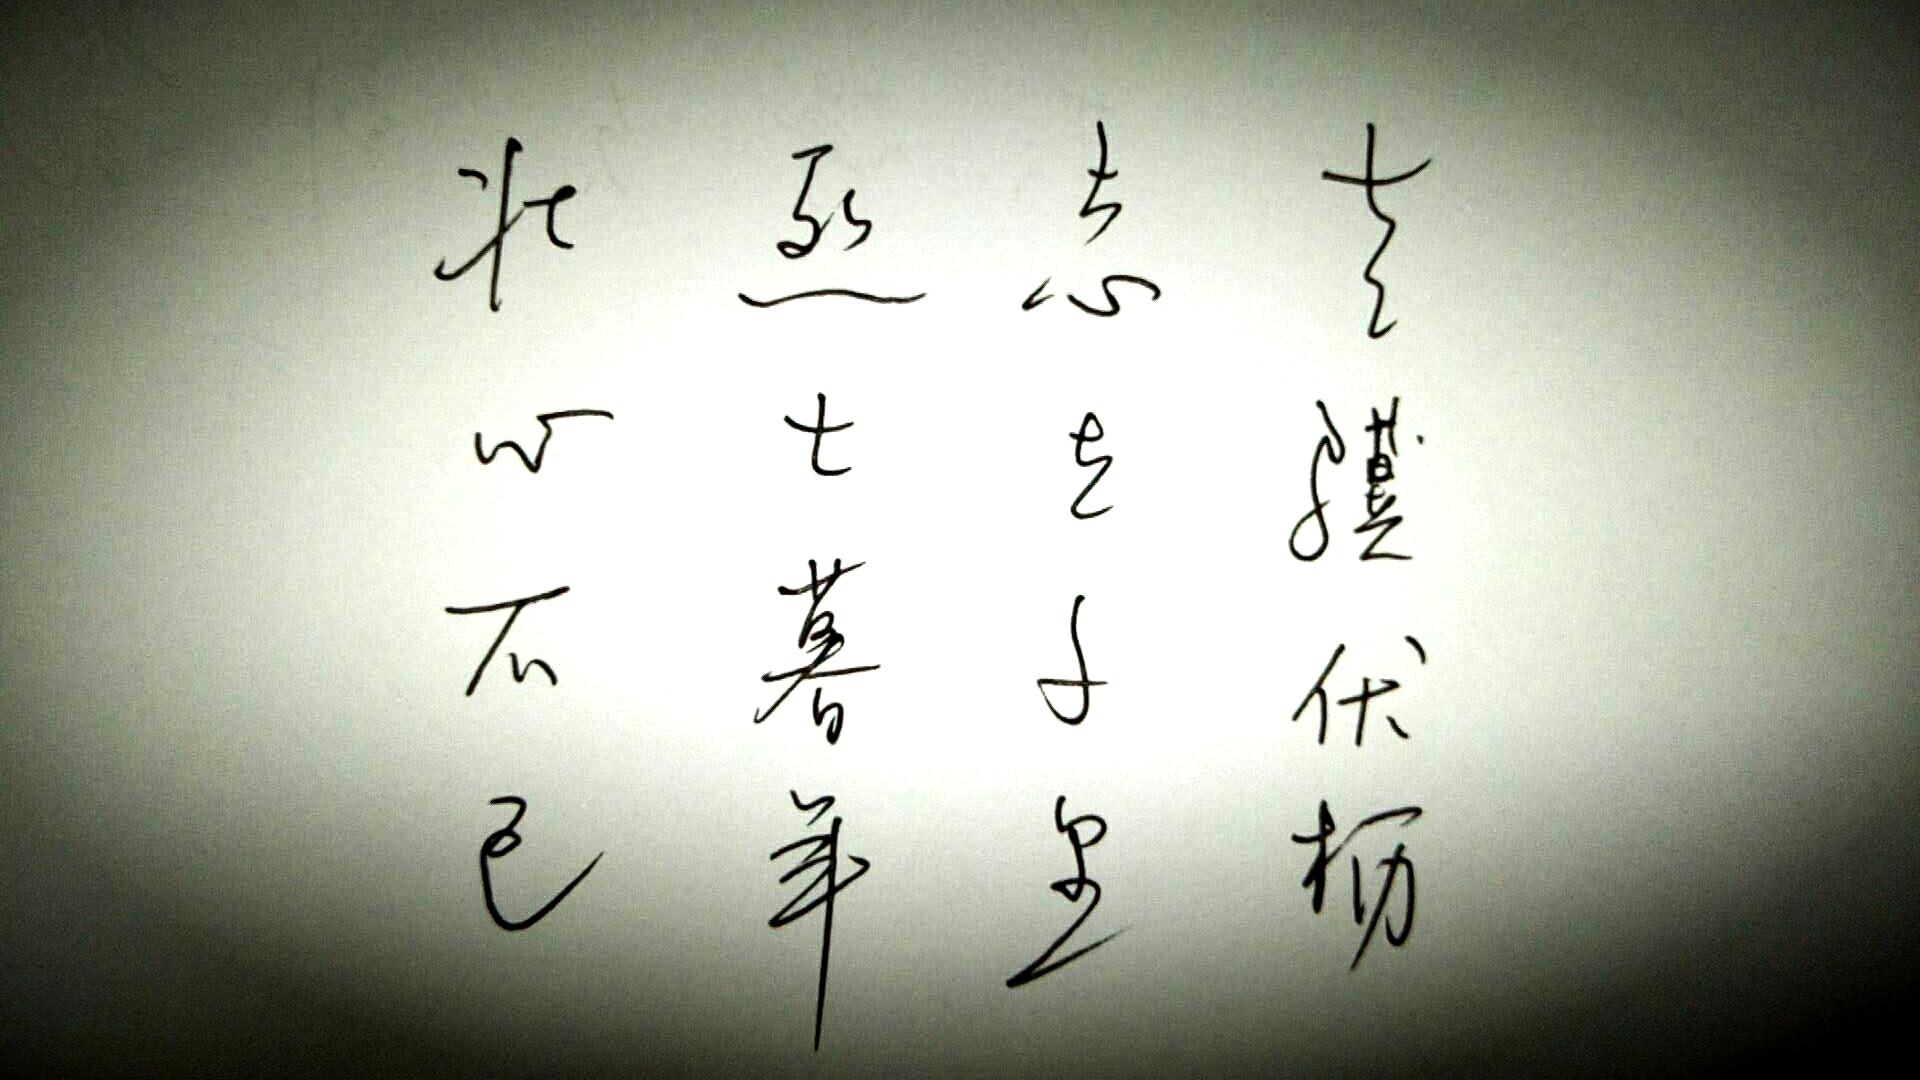 老骥伏枥
志在千里
烈士暮年
壮心不已